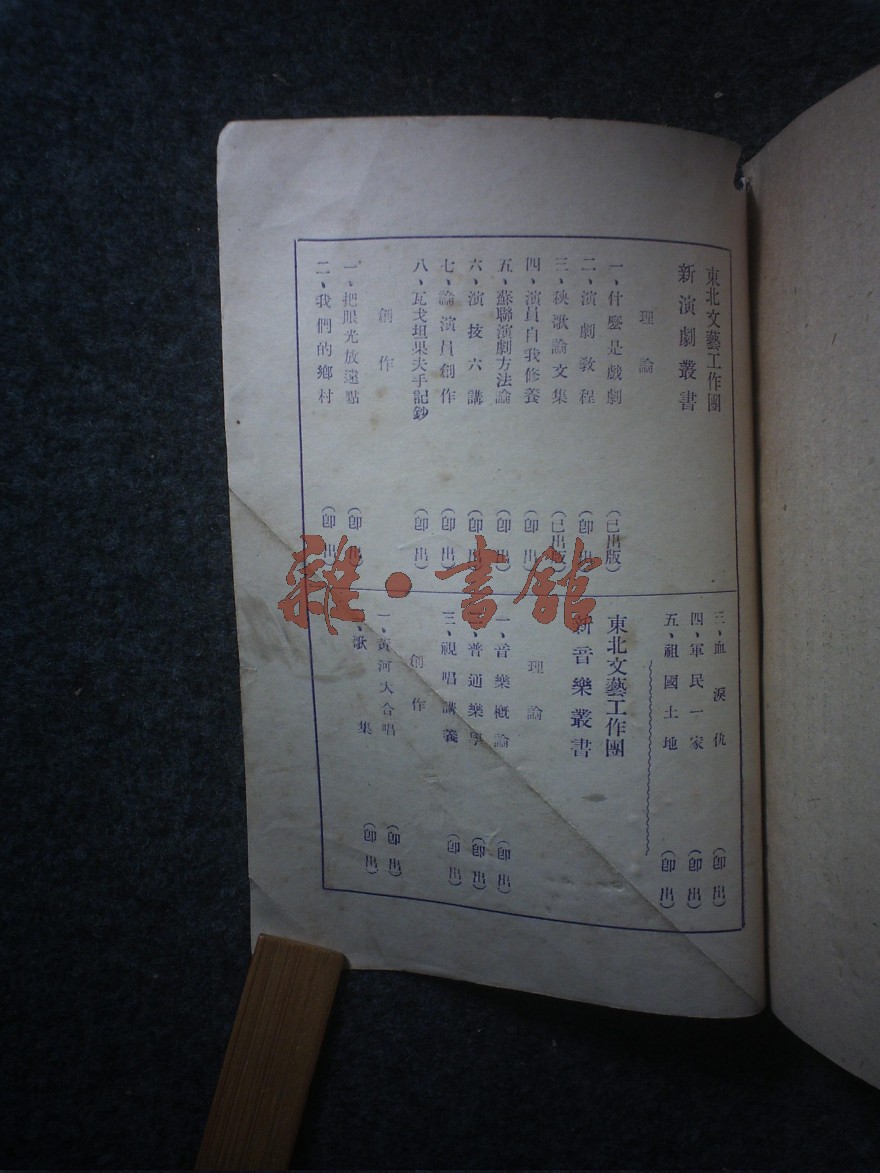 東北文藝工作團
新演劇叢書
理論
一、什麼是戲劇 (已出版)
二、演劇敎程 (卽出)
三、秧歌論文集 (已出版)
四、演員自我修養 (卽出)
五、蘇聯演劇方法論 (卽出)
六、演技六講 (卽出)
七、論演員創作 (卽出)
八、瓦戈坦果夫手記鈔 (卽出)
創作
一、把眼光放遠點 (卽出)
二、我們的鄉村 (卽出)
三、血淚仇 (卽出)
四、軍民一家 (卽出)
五、祖國土地 (卽出)
東北文藝工作團
新音樂叢書
理論
一、音樂概論 (卽出)
普通樂學 (卽出)
三、視唱講義 (卽出)
創作
一、黃河大合唱 (卽出)
歌集 (卽出)
雜·書館